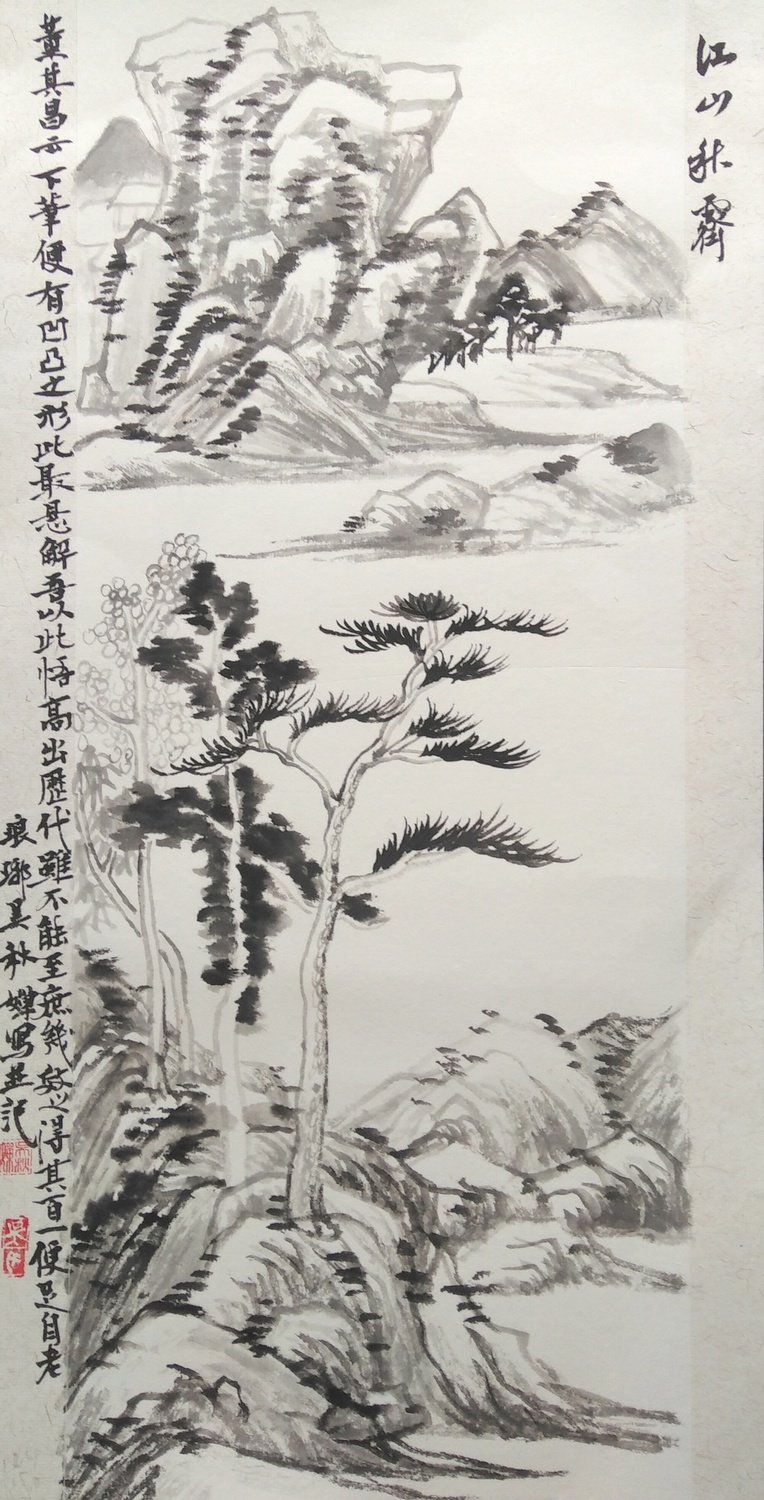 江山秋霽
董其昌云下筆便有凹凸之形此最懸解吾以此悟高出歷代雖不能至庶幾效之得其百一便足自老
琅琊吳秋蝶寫並記